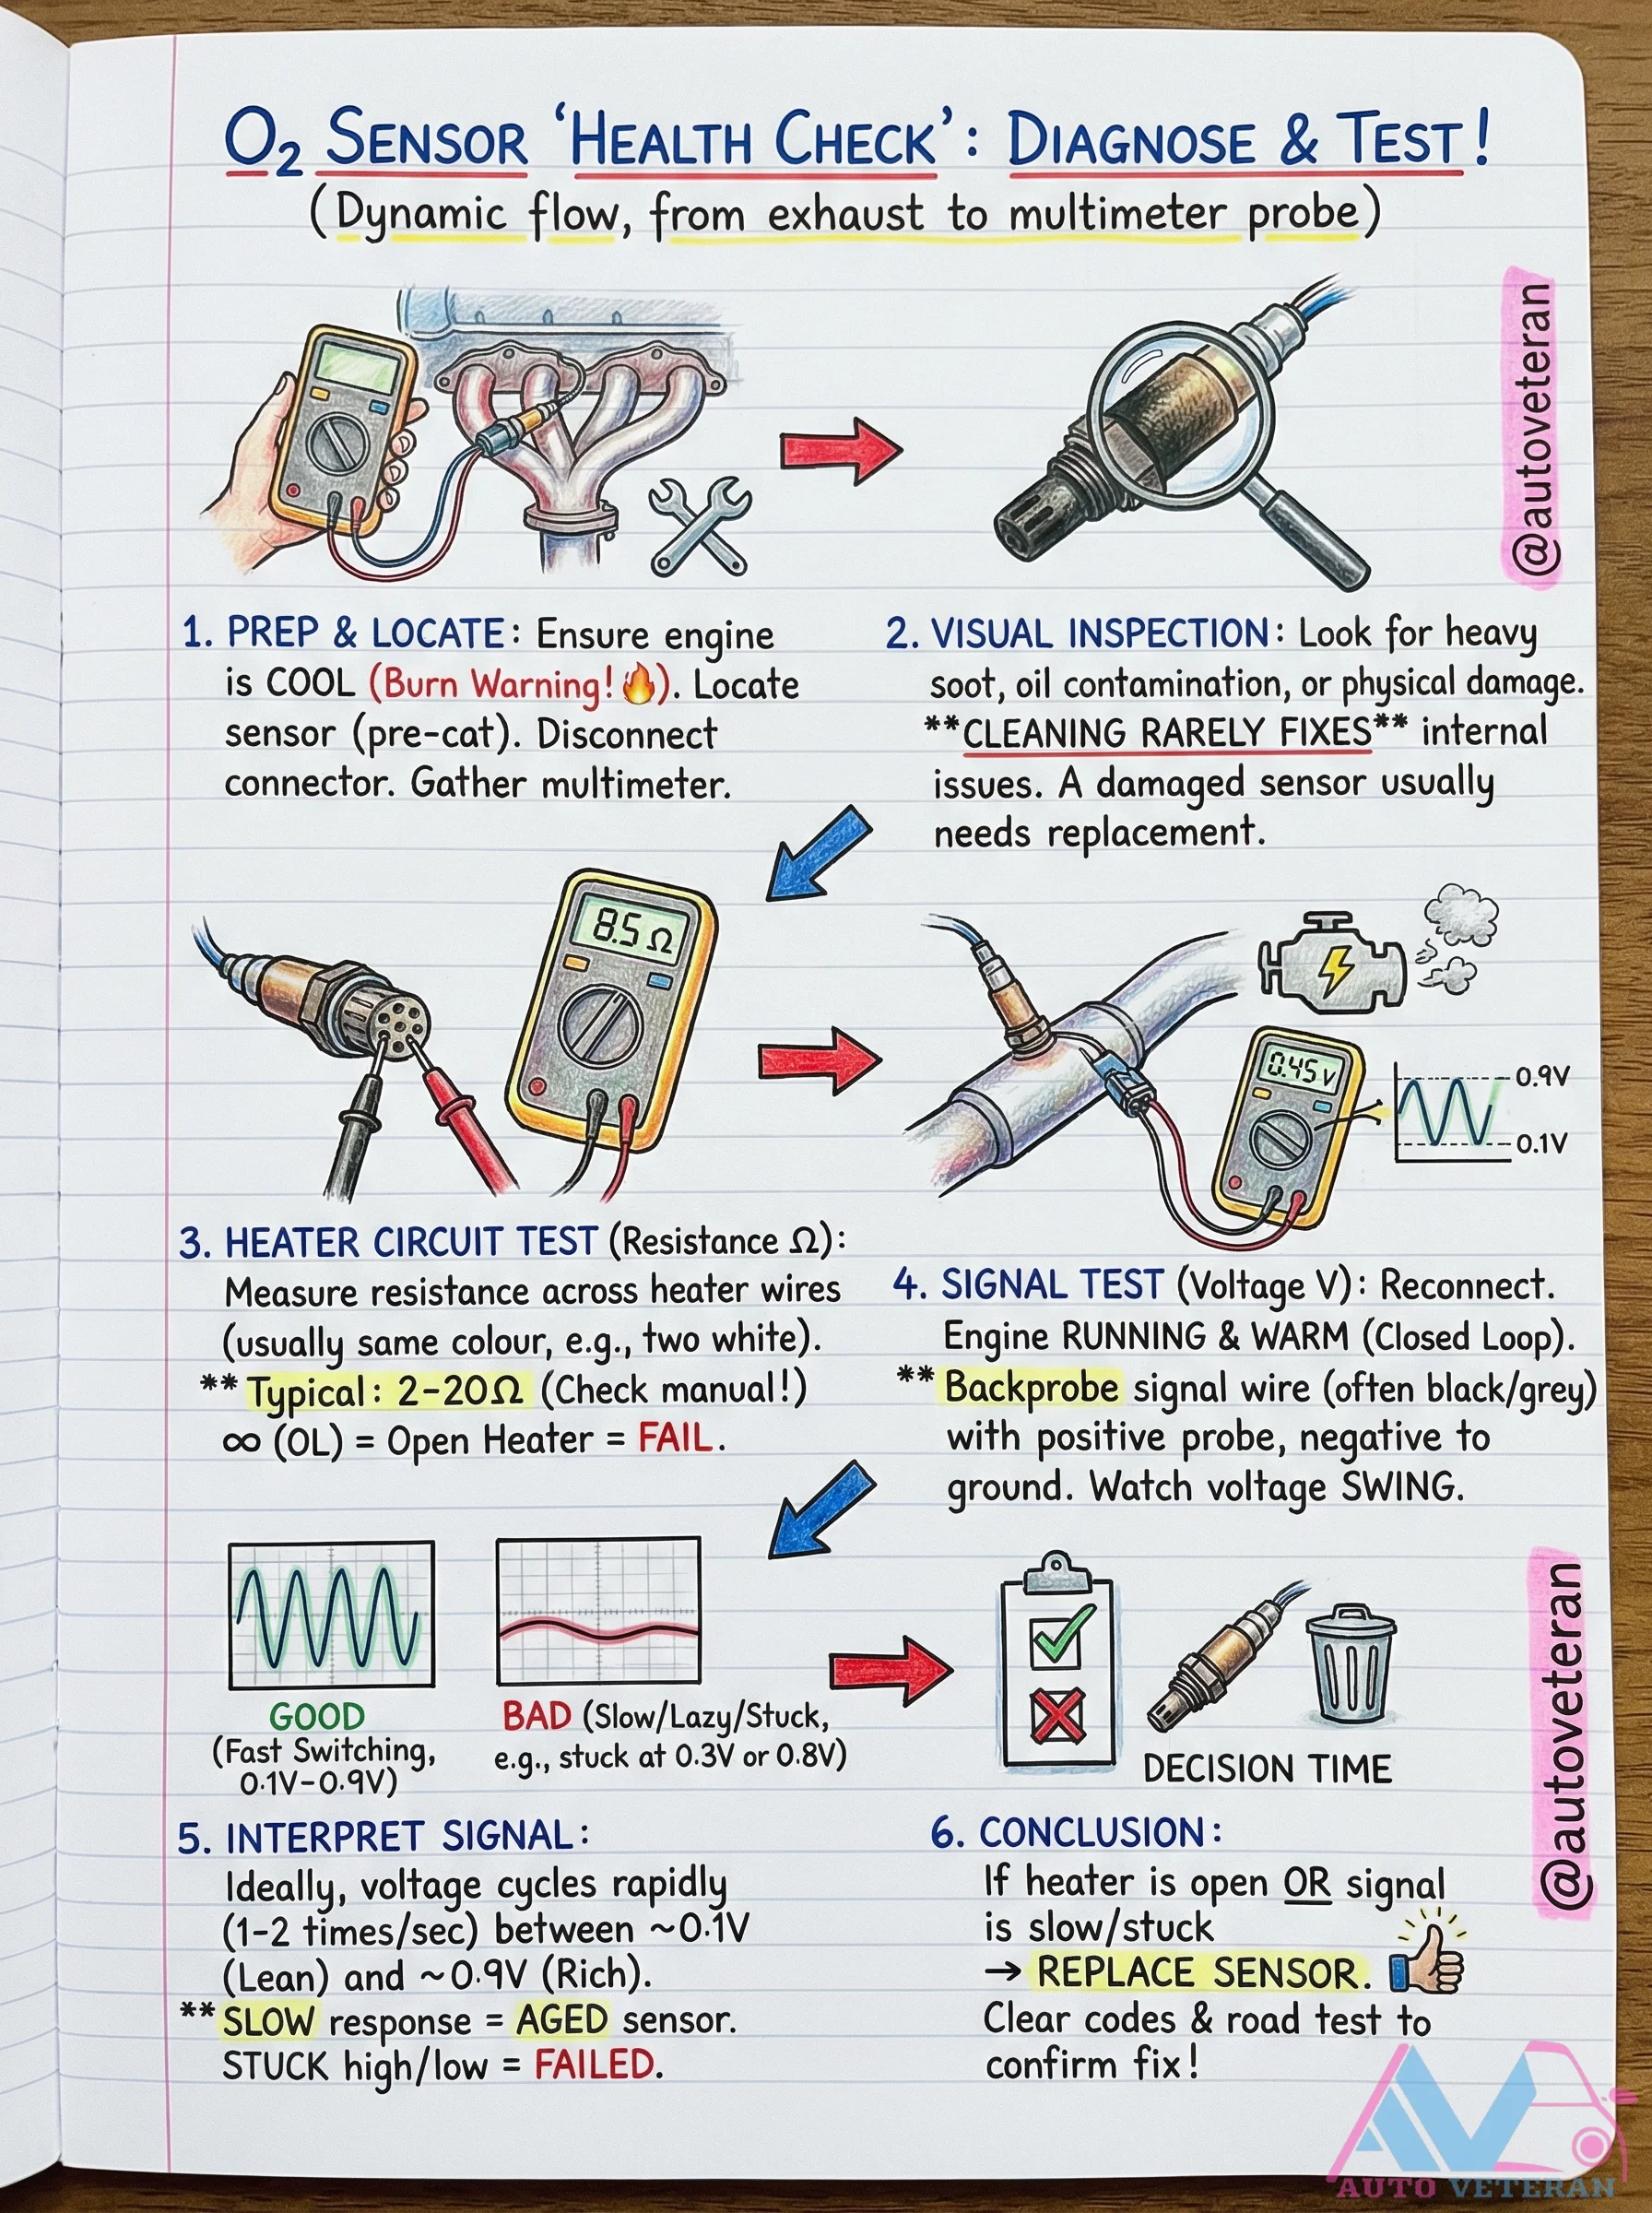 O₂ SENSOR ‘HEALTH CHECK’: DIAGNOSE & TEST!
(Dynamic flow, from exhaust to multimeter probe)
@autoveteran
1. PREP & LOCATE: Ensure engine
is COOL (Burn Warning!🔥). Locate
sensor (pre-cat). Disconnect
connector. Gather multimeter.
2. VISUAL INSPECTION: Look for heavy
soot, oil contamination, or physical damage.
**CLEANING RARELY FIXES** internal
issues. A damaged sensor usually
needs replacement.
8.5 Ω
3. HEATER CIRCUIT TEST (Resistance Ω):
Measure resistance across heater wires
(usually same colour, e.g., two white).
** Typical: 2-20Ω (Check manual!)
∞ (OL) = Open Heater = FAIL.
0.45 v
0.9V
0.1V
4. SIGNAL TEST (Voltage V): Reconnect.
Engine RUNNING & WARM (Closed Loop).
** Backprobe signal wire (often black/grey)
with positive probe, negative to
ground. Watch voltage SWING.
GOOD
(Fast Switching,
0.1V-0.9V)
BAD (Slow/Lazy/Stuck,
e.g., stuck at 0.3V or 0.8V)
5. INTERPRET SIGNAL:
Ideally, voltage cycles rapidly
(1-2 times/sec) between ~0.1V
(Lean) and ~0.9V (Rich).
** SLOW response = AGED sensor.
STUCK high/low = FAILED.
DECISION TIME
6. CONCLUSION:
If heater is open OR signal
is slow/stuck
→ REPLACE SENSOR.
Clear codes & road test to
confirm fix!
@autoveteran
AV
AUTO VETERAN